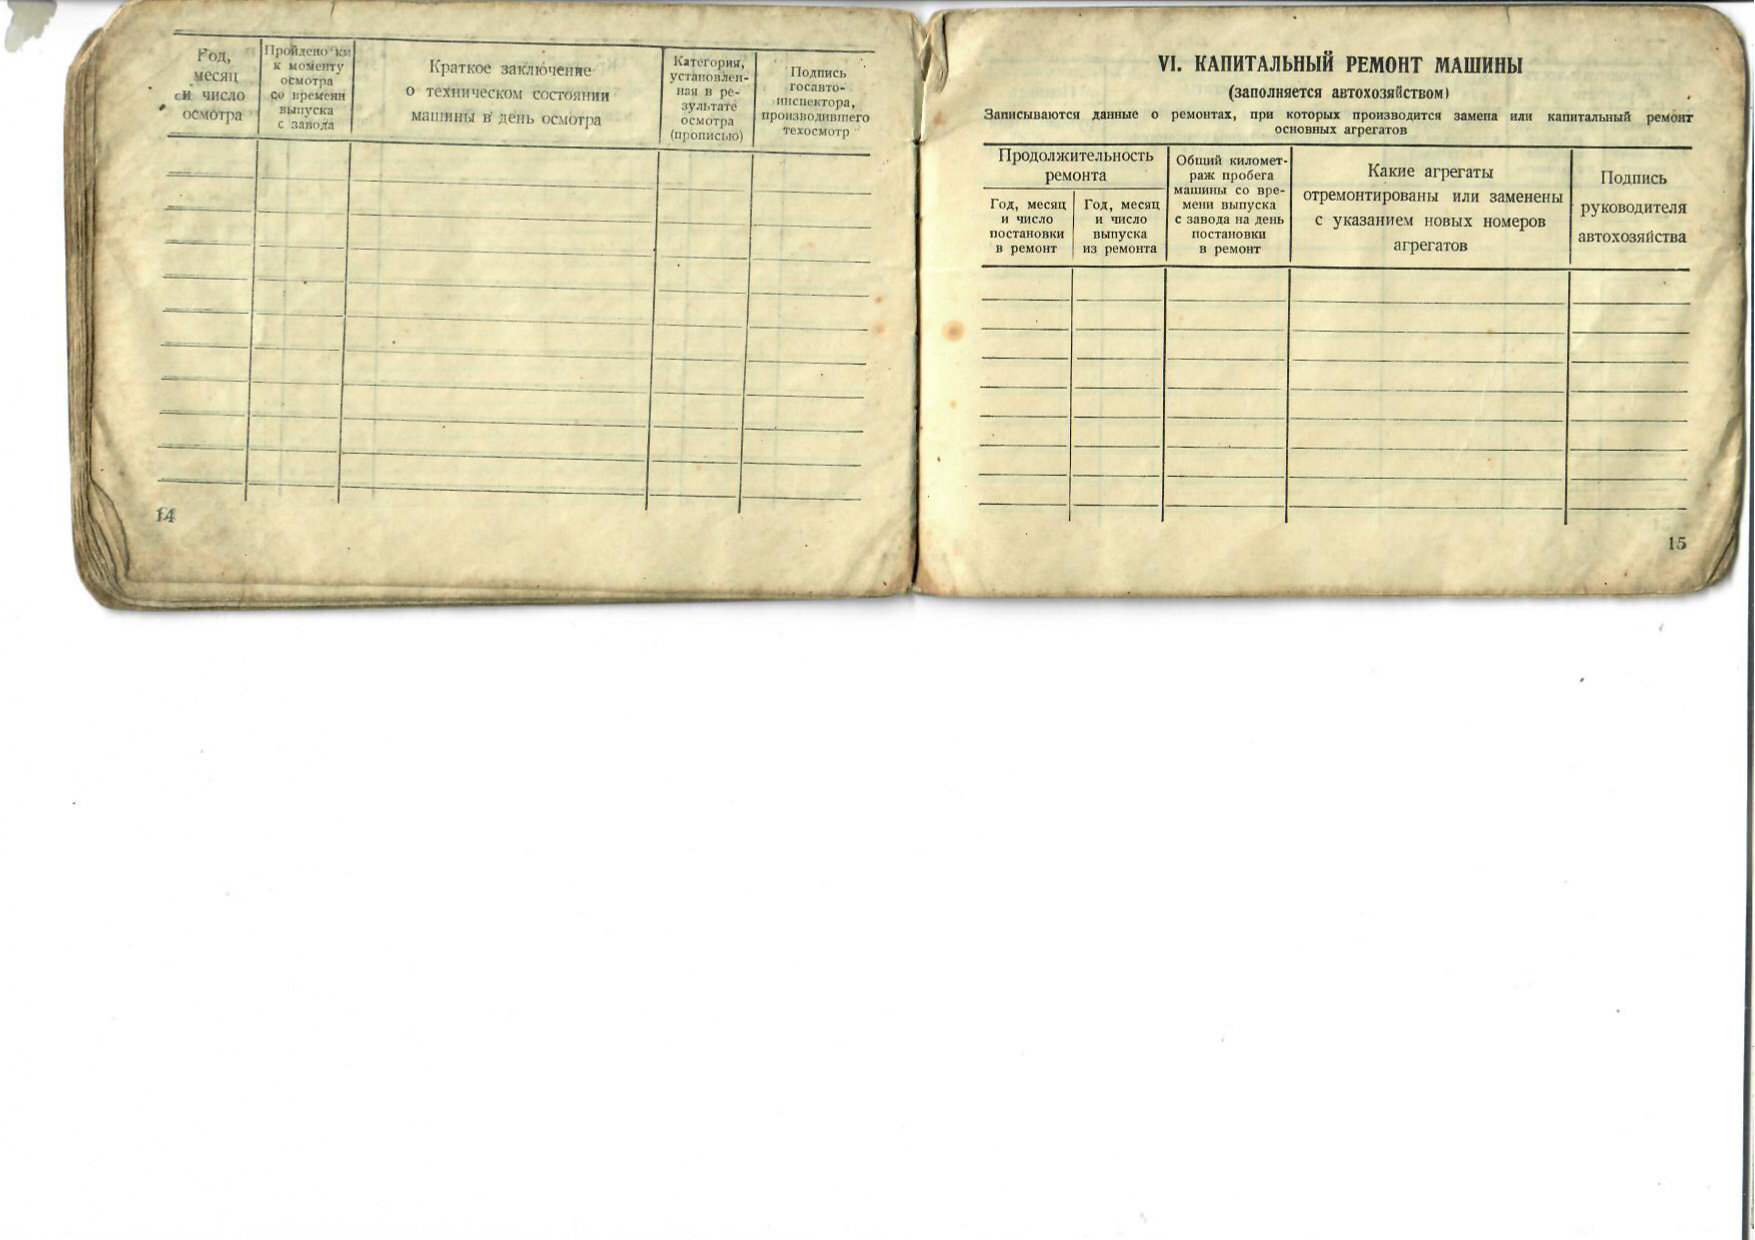 Год,
месяц
и число
осмотра
Пройдено км
к моменту
осмотра
со времени
выпуска
с завода
Краткое заключение
о техническом состоянии
машины в день осмотра
Категория,
установлен-
ная в ре-
зультате
осмотра
(прописью)
Подпись
госавто-
инспектора,
производившего
техосмотр
14
VI. КАПИТАЛЬНЫЙ РЕМОНТ МАШИНЫ
(заполняется автохозяйством)
Записываются данные о ремонтах, при которых производится замена или капитальный ремонт
основных агрегатов
Продолжительность
ремонта
Год, месяц
и число
постановки
в ремонт
Год, месяц
и число
выпуска
из ремонта
Общий километ-
раж пробега
машины со вре-
мени выпуска
с завода на день
постановки
в ремонт
Какие агрегаты
отремонтированы или заменены
с указанием новых номеров
агрегатов
Подпись
руководителя
автохозяйства
15